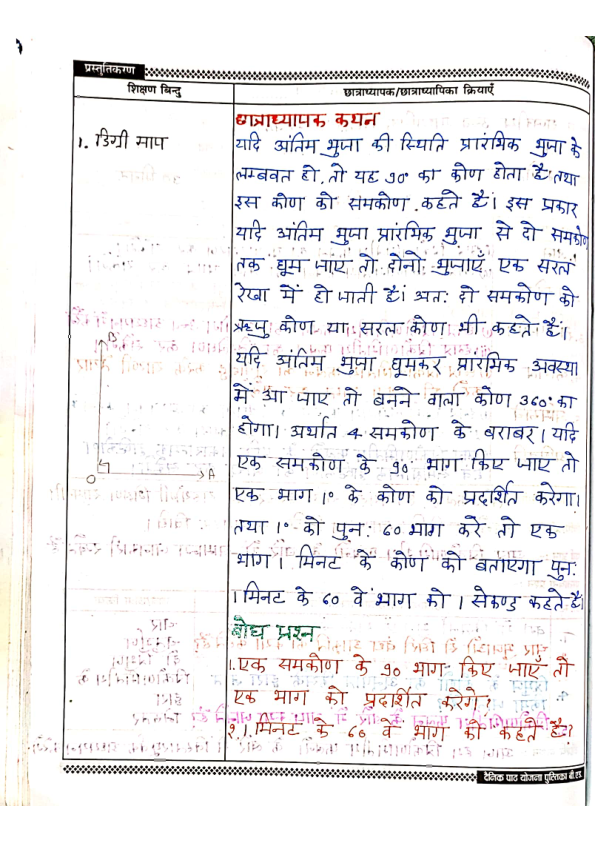 प्रस्तुतिकरण
शिक्षण बिन्दु
छात्राध्यापक/छात्राध्यापिका क्रियाएँ
छात्राध्यापक कथन
1. डिग्री माप
यदि अंतिम भुजा की स्थिति प्रारंभिक भुजा के
लम्बवत हो, तो यह 90° का कोण होता है तथा
इस कोण को समकोण कहते हैं। इस प्रकार
यदि अंतिम भुजा प्रारंभिक भुजा से दो समकोण
तक घूम जाए तो दोनो भुजाएँ एक सरल
रेखा में हो जाती है। अतः दो समकोण को
ऋजु कोण या सरल कोण भी कहते हैं।
यदि अंतिम भुजा घूमकर प्रारंभिक अवस्था
में आ जाए तो बनने वाला कोण 360° का
होगा। अर्थात 4 समकोण के बराबर। यदि
एक समकोण के 90 भाग किए जाए तो
एक भाग 1° के कोण को प्रदर्शित करेगा।
तथा 1° को पुनः 60 भाग करे तो एक
भाग 1 मिनट के कोण को बताएगा पुनः
1 मिनट के 60 वें भाग को 1 सेकण्ड कहते है।
B
O
A
बोध प्रश्न
1. एक समकोण के 90 भाग किए जाएँ तो
एक भाग को प्रदर्शित करेगे?
2. 1 मिनट के 60 वें भाग को कहते है?
दैनिक पाठ योजना पुस्तिका बी.एड.